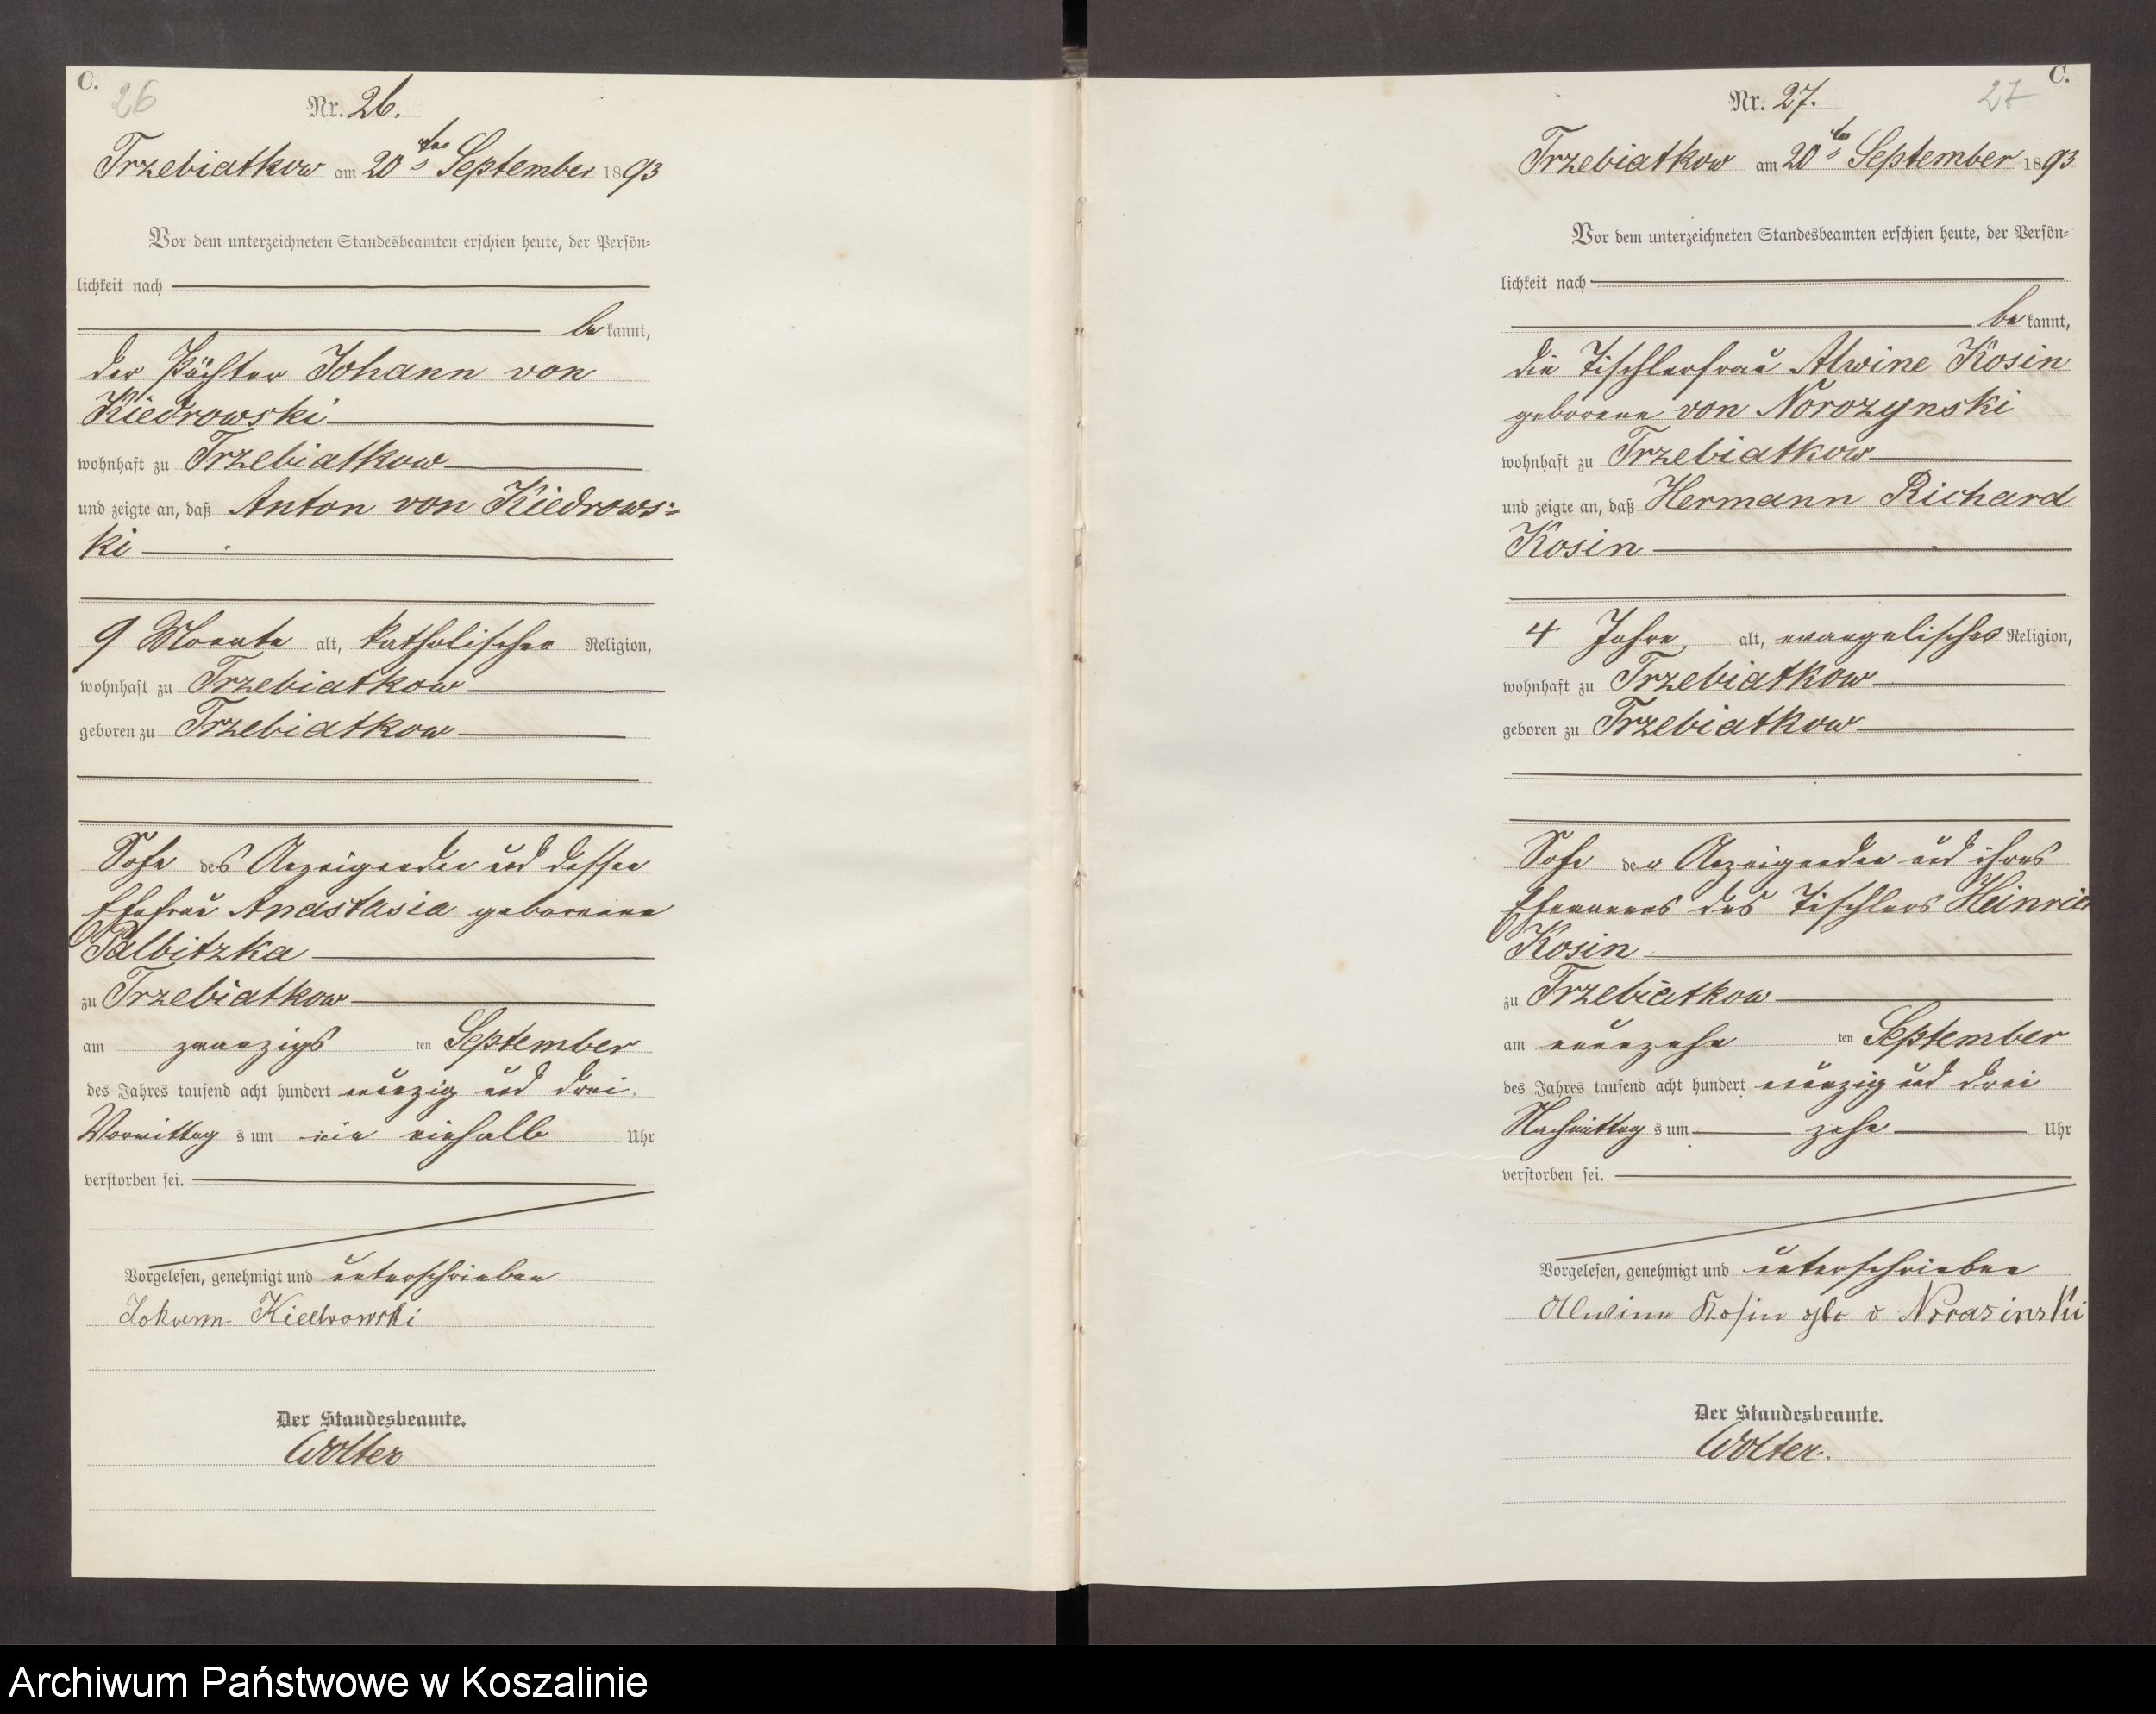 C.
26
Nr. 26.
Trzebiatkow am 20ten September 1893
Vor dem unterzeichneten Standesbeamten erschien heute, der Persön=
lichkeit nach
be kannt,
der Pächter Johann von
Kiedrowski
wohnhaft zu Trzebiatkow
und zeigte an, daß Anton von Kiedrows=
ki
9 Monate alt, katholischer Religion,
wohnhaft zu Trzebiatkow
geboren zu Trzebiatkow
Sohn des Anzeigenden und dessen
Ehefrau Anastasia geborenen
Palbitzka
zu Trzebiatkow
am zwanzigs ten September
des Jahres tausend acht hundert neunzig und drei
Vormittag s um ein einhalb Uhr
verstorben sei.
Vorgelesen, genehmigt und unterschrieben
Johann Kiedrowski
Der Standesbeamte.
Wolter
C.
27
Nr. 27.
Trzebiatkow am 20ten September 1893
Vor dem unterzeichneten Standesbeamten erschien heute, der Persön=
lichkeit nach
be kannt,
die Tischlerfrau Alwine Kosin
geborene von Norozynski
wohnhaft zu Trzebiatkow
und zeigte an, daß Hermann Richard
Kosin
4 Jahre alt, evangelischer Religion,
wohnhaft zu Trzebiatkow
geboren zu Trzebiatkow
Sohn der Anzeigenden und ihres
Ehemannes des Tischlers Heinrich
Kosin
zu Trzebiatkow
am neunzehn ten September
des Jahres tausend acht hundert neunzig und drei
Nachmittag s um zehn Uhr
verstorben sei.
Vorgelesen, genehmigt und unterschrieben
Alwine Kosin gbr v Norasinski
Der Standesbeamte.
Wolter.
Archiwum Państwowe w Koszalinie